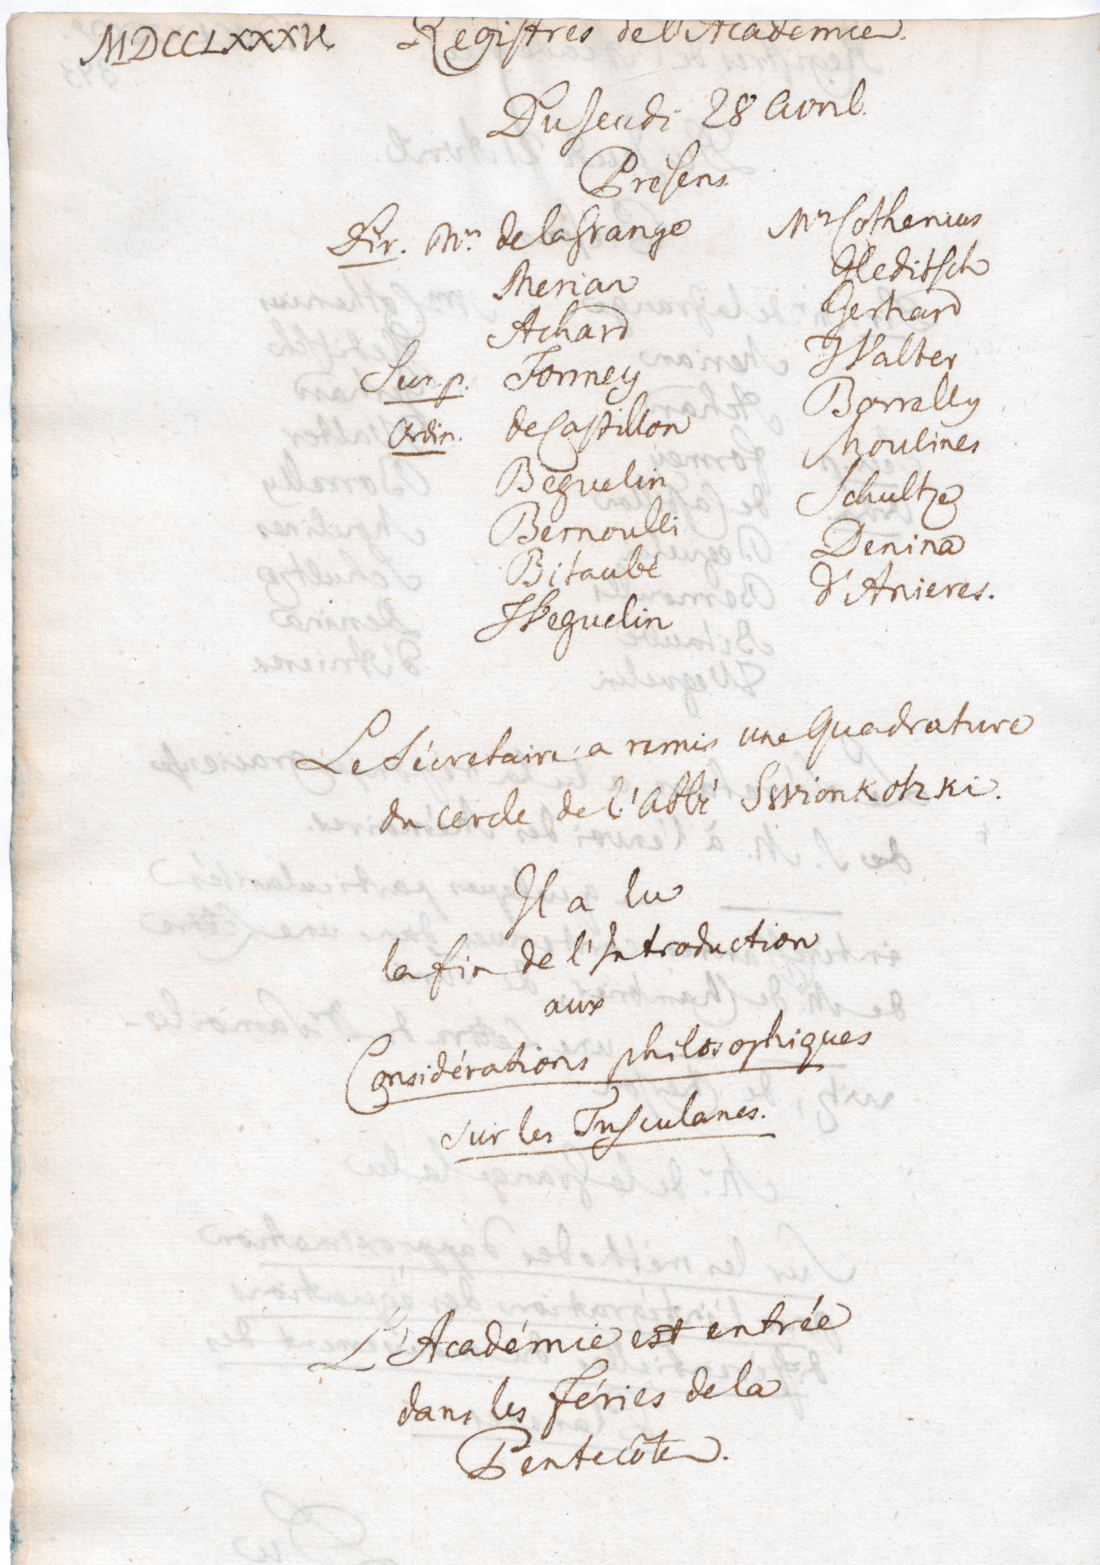 MDCCLXXXVI. Regiſtres de l'Academie.
Du Jeudi 28 Avril.
Préſens
Dir. Mrs de la Grange
Merian
Achard
Surp. Formey
Ordin. de Caſtillon
Beguelin
Bernoulli
Bitaubé
Weguelin
Mrs Cothenius
Gleditſch
Gerhard
Walter
Borrelly
Moulines
Schultze
Denina
d'Anieres.
Le Sécretaire a remis une Quadrature
du cercle de l'Abbé
Il a lu
la fin de l'Introduction
aux
Considérations philosophiques
sur les Tuſculanes.
L'Académie est entrée
dans les féries de la
Pentecôte.